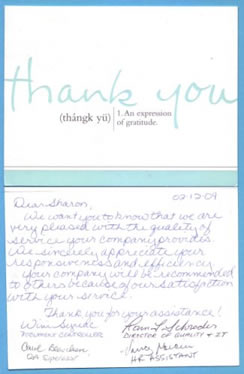 thank you
(thăngk yü)
1. An expression
of gratitude.
02-12-09
Dear Sharon,
We want you to know that we are
very pleased with the quality of
service your company provides.
We sincerely appreciate your
responsiveness and efficiency.
Your company will be recommended
to others because of our satisfaction
with your service.
Thank you for your assistance!
Ann L. Schroeder
DIRECTOR OF QUALITY + IT
HR ASSISTANT